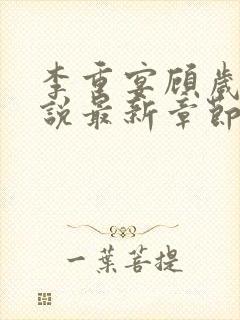 李重宴顾岁
说最新章节
一葉菩提